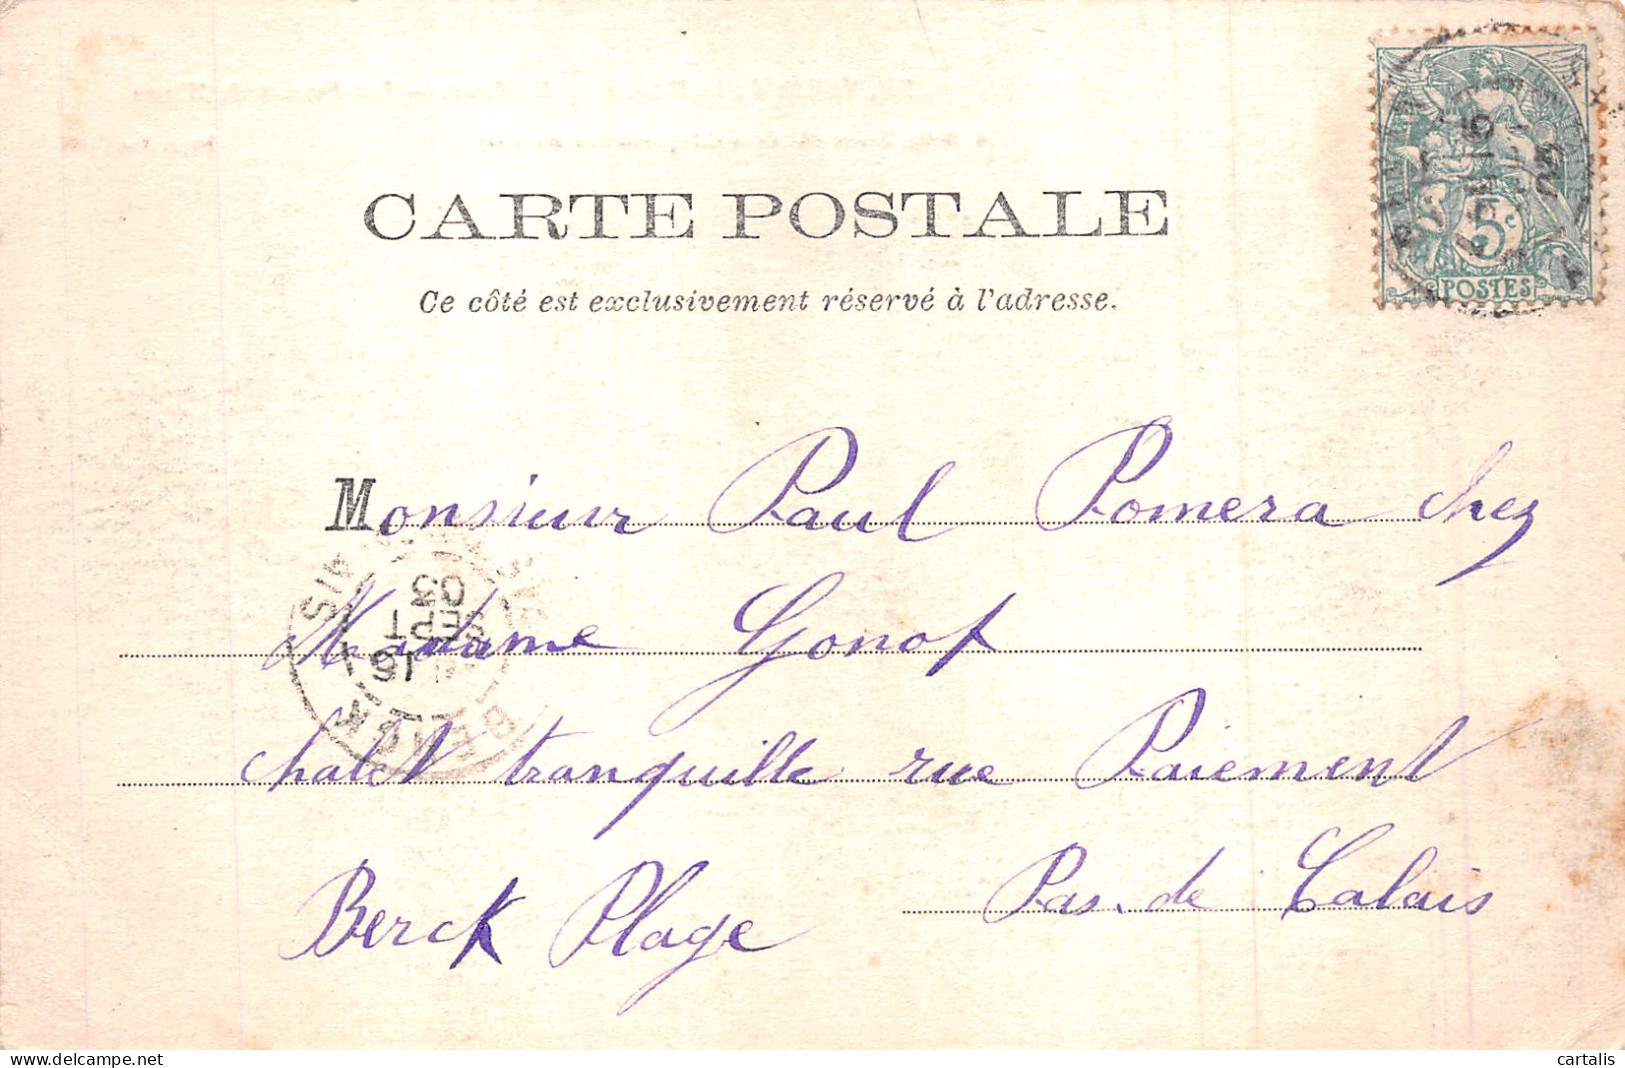 CARTE POSTALE
Ce côté est exclusivement réservé à l'adresse.
5c
POSTES
Monsieur Paul Pomera chez
Madame Gonot
chalet tranquille rue Paiement
Berck Plage Pas. de Calais
BERCK
16
SEPT
03
delcampe.net
cartalis